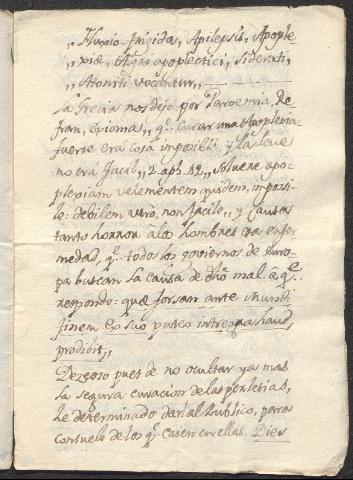 „ Humio-frigida, Apilepsis, Apople
„ xiæ, Ægri apoplectici, siderati,
„ Atoniti vocantur„
La Grecia nos dejo por Paroemia, Re-
fran, Epioma„ q.e curar una Apoplexia
fuerte era cosa imposible, y la leve
no era facil„ 2. aph. 42„ solvere apo-
plexiam vehementem quidem, imposi-
le: debilem verò, non facile„ y causa
tanto horror â los hombres esta enfer
medad, q.e todos los goviernos de Euro-
pa buscan la causa de dho mal. â q.e
respondo: quæ forsam ante Mundi
finem ex suo puteo integra haud
prodibit„
Dezeoso pues de no ocultar yâ mas
la segura curacion de las perlesias,
he determinado darla al Publico, para
consuelo de los q.e caen en ellas. Dies